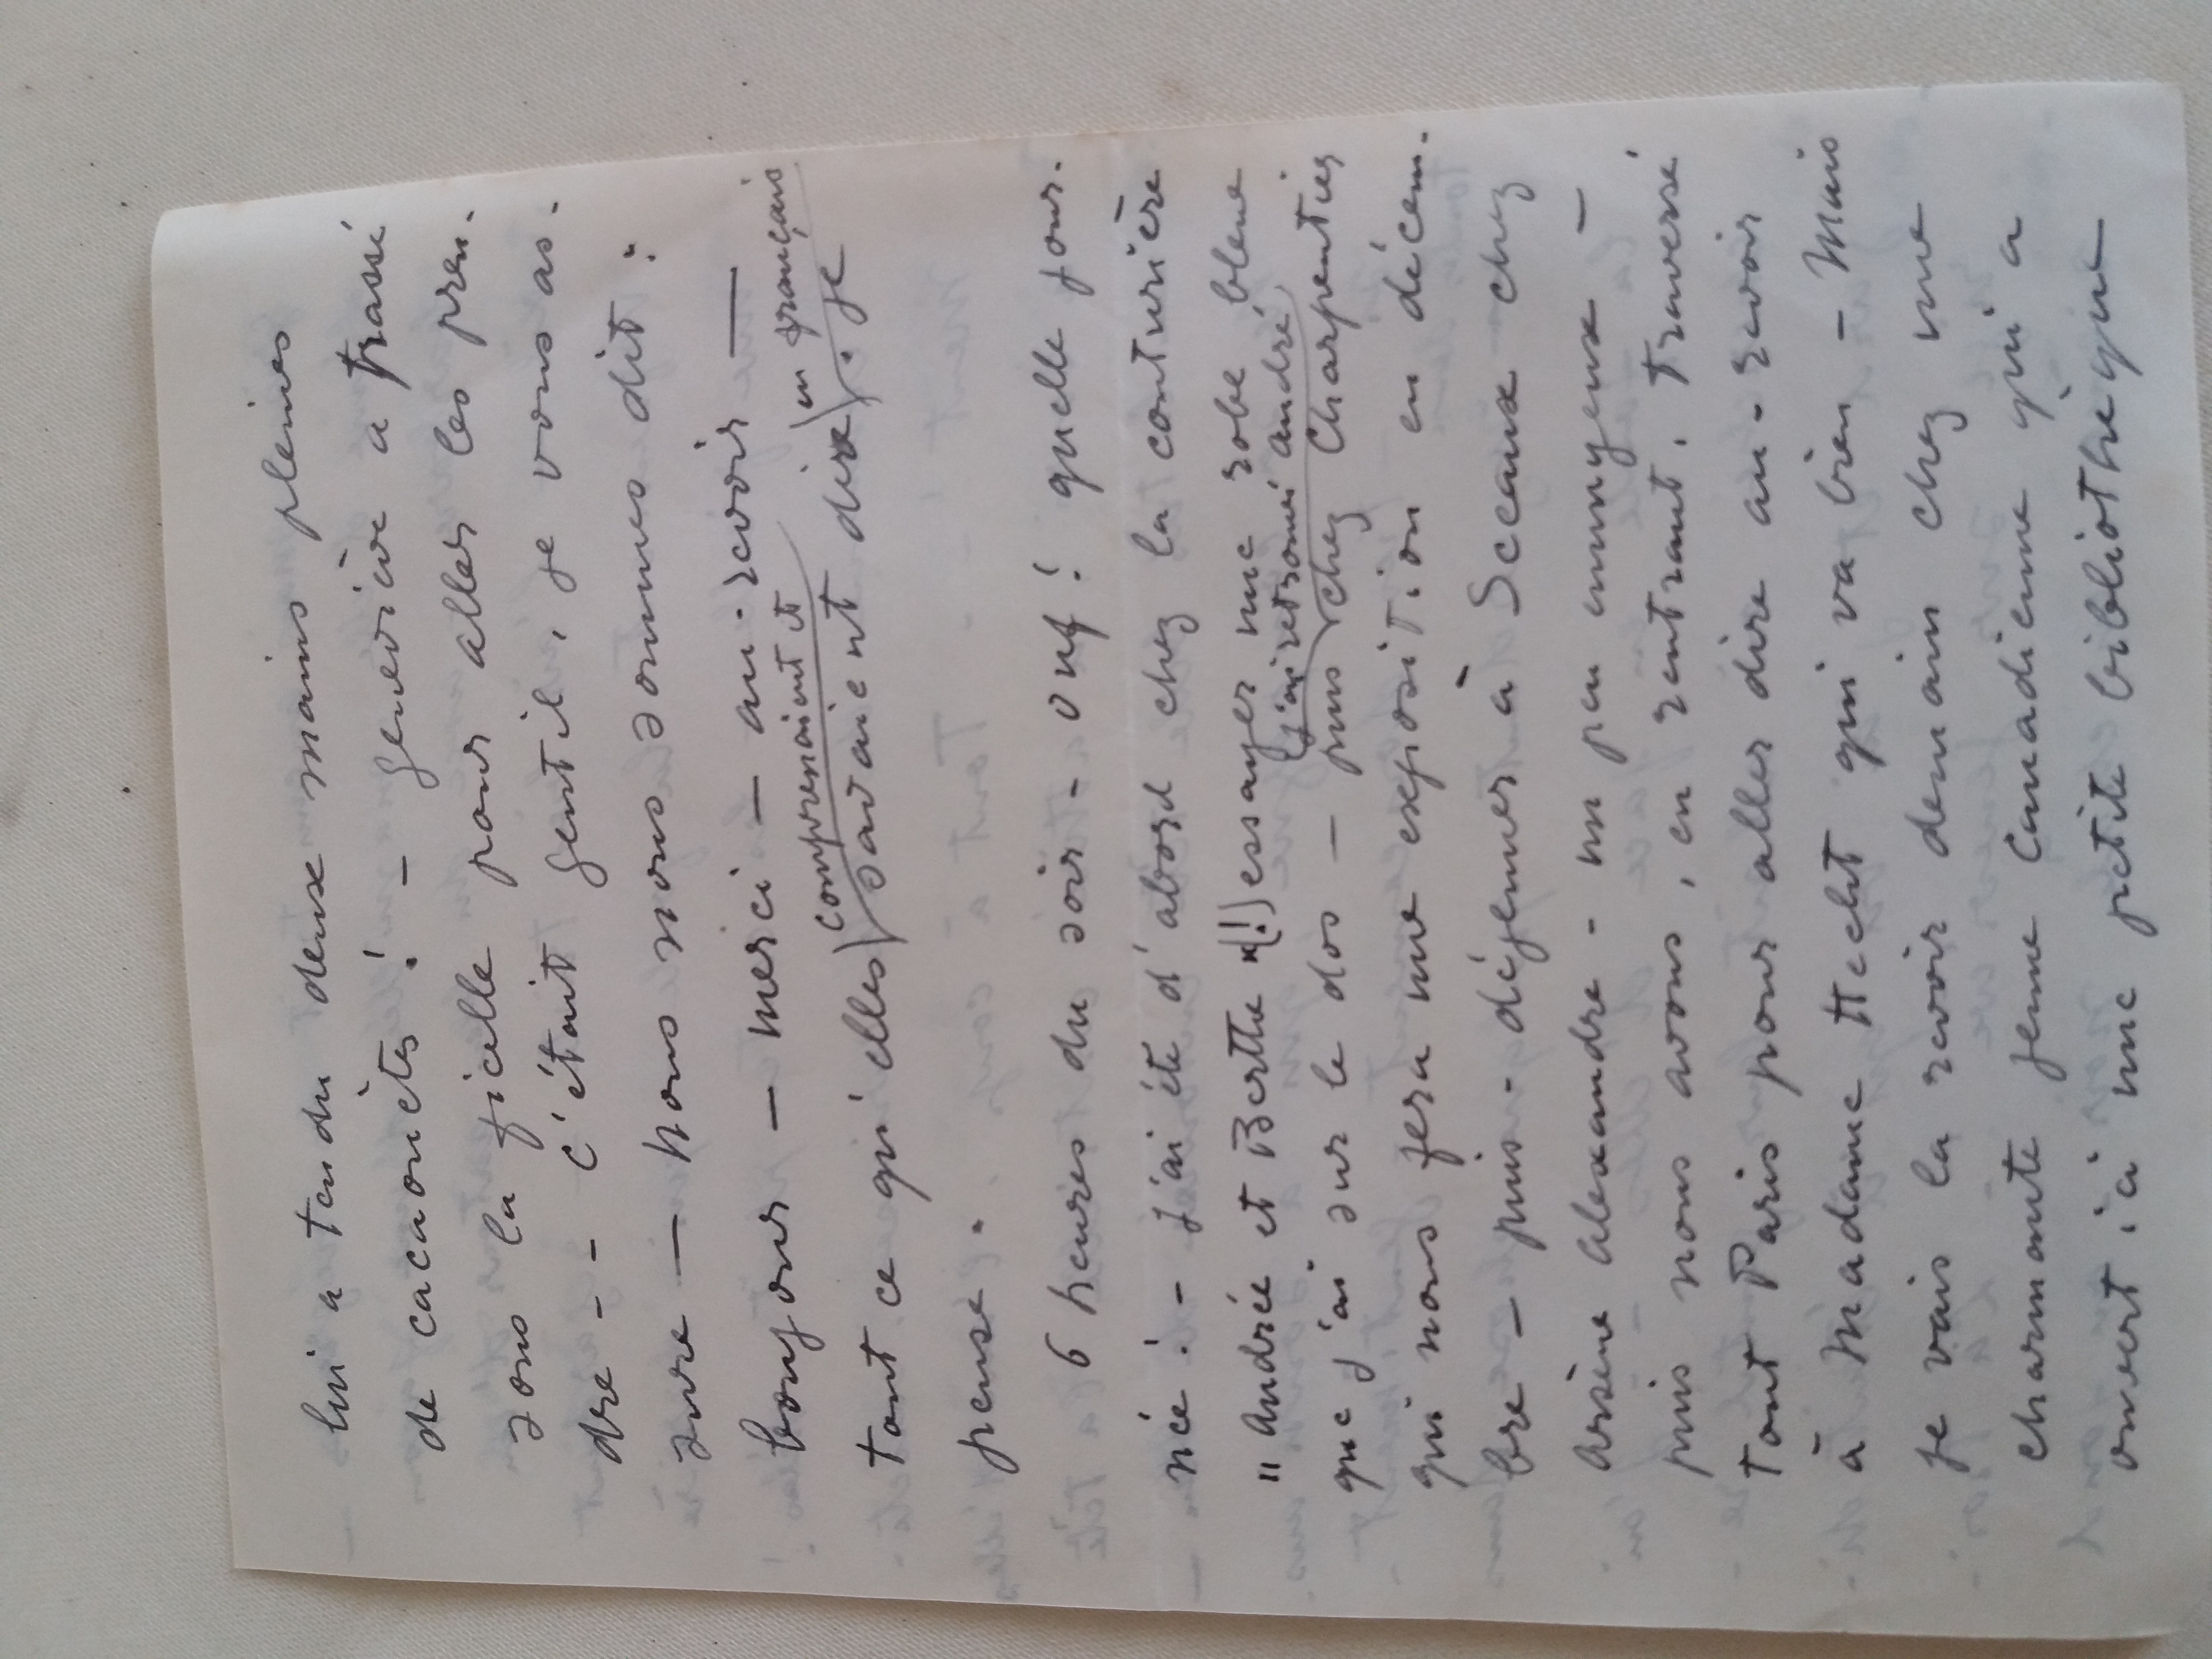 lui a tendu deux mains pleines
de cacaouètes ! - Geneviève a passé
sous la ficelle pour aller les pren-
dre - - c'était gentil, je vous as-
sure — nous nous sommes dit :
bonjour — merci — au-revoir —
(comprenaient et (en français)
tout ce qu'elles savaient dire . je
pense .
6 heures du soir - ouf ! quelle jour-
née : - j'ai été d'abord chez la couturière
"Andrée et Berthe" (!) essayer une robe bleue
(j'ai retrouvé André)
que j'ai sur le dos — puis chez Charpentier
qui nous fera une exposition en décem-
bre — puis - déjeuner à Sceaux chez
Arsène Alexandre - un peu ennuyeux —
puis nous avons, en rentrant, traversé
tout Paris pour aller dire au-revoir
à Madame Hecht qui va bien - Mais
je vais la revoir demain chez une
charmante jeune Canadienne qui a
ouvert ici une petite bibliothèque